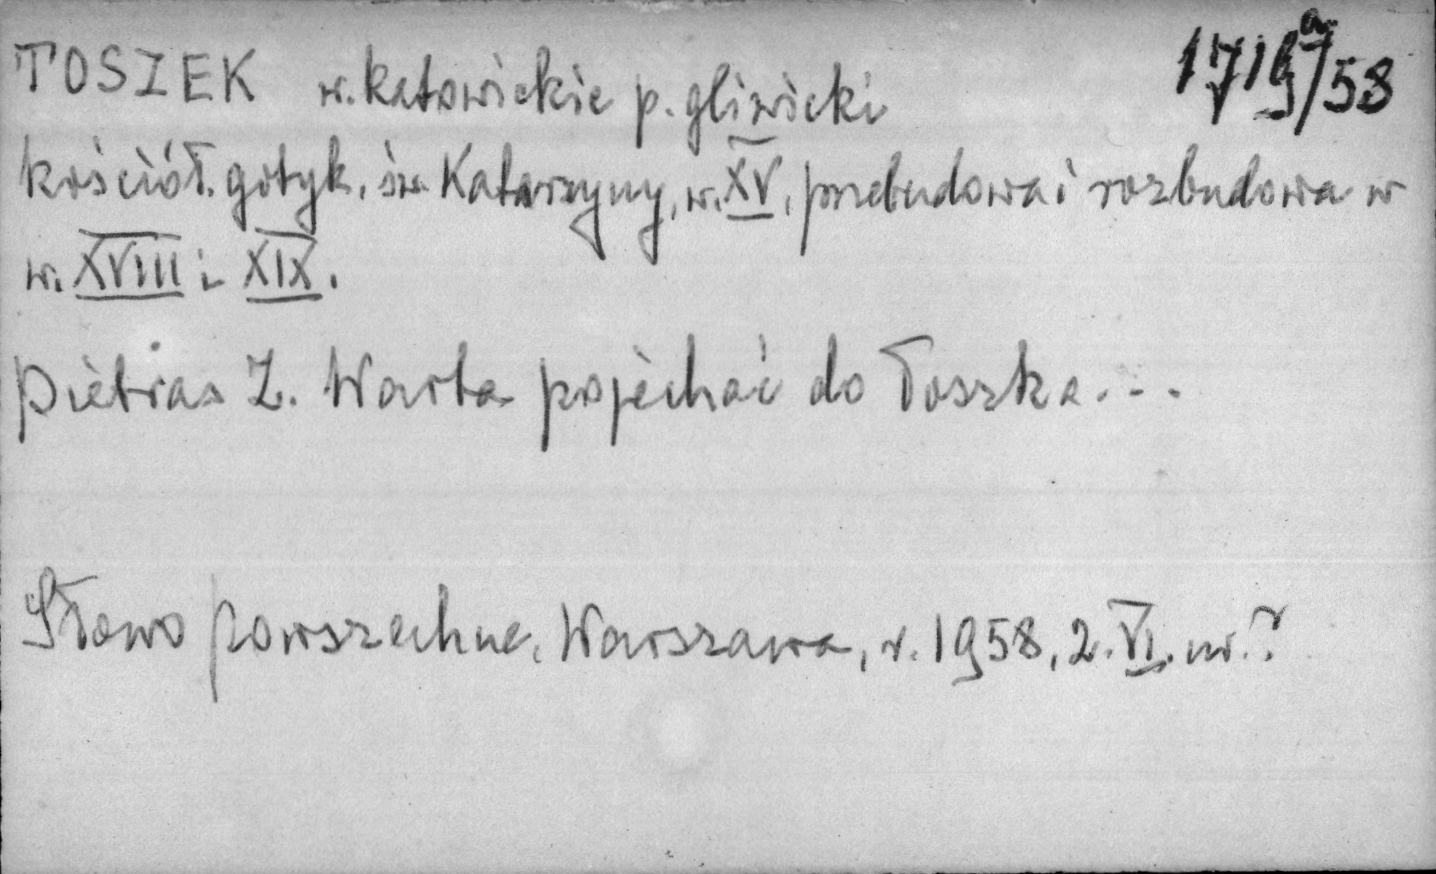 TOSZEK w. katowickie p. gliwicki 1719a/58
kościół gotyk. św. Katarzyny, w. XV, przebudowa i rozbudowa w
w. XVIII i XIX.
Pietras Z. Warto pojechać do Toszka...
Słowo Powszechne, Warszawa, r. 1958, 2. VI. nr. ?